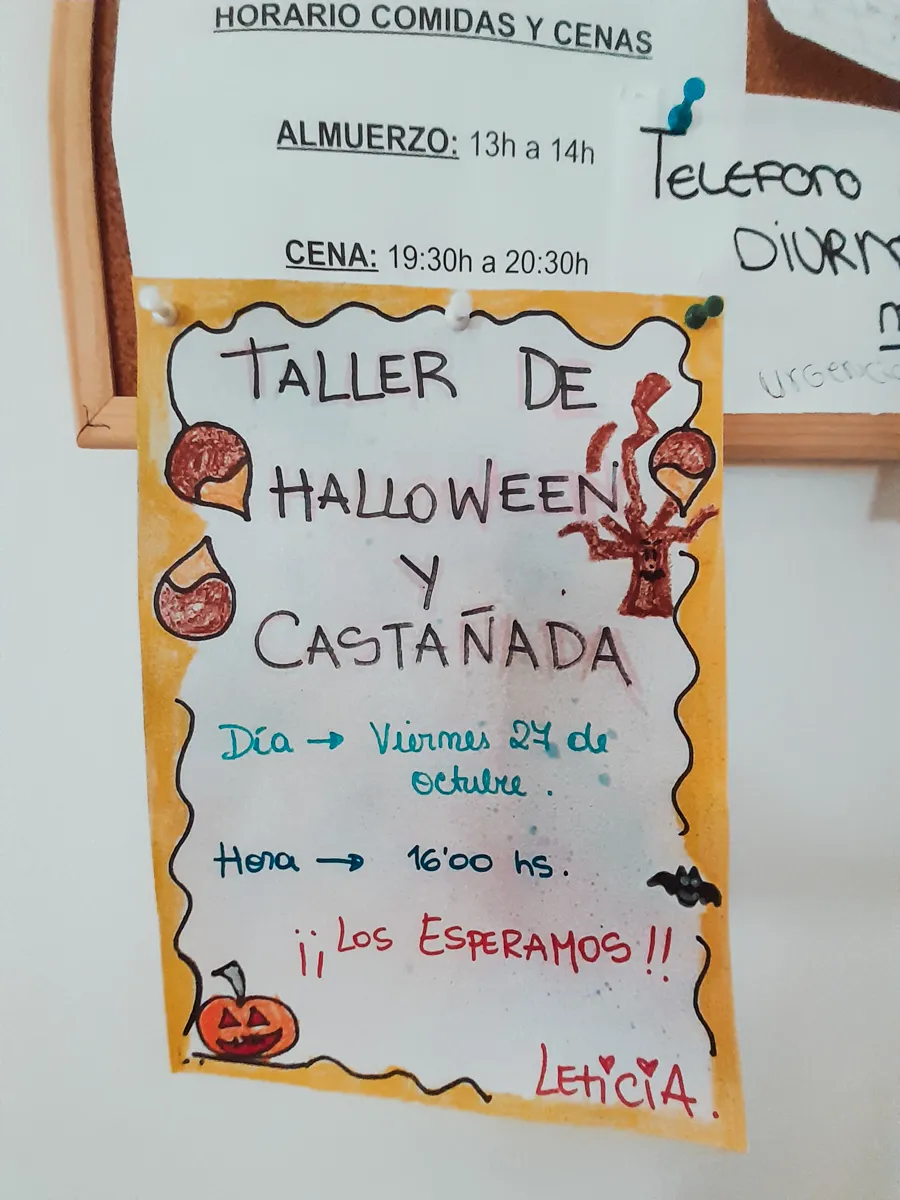 HORARIO COMIDAS Y CENAS
ALMUERZO: 13h a 14h
CENA: 19:30h a 20:30h
TELEFONO
TALLER DE
HALLOWEEN
Y
CASTAÑADA
Día → Viernes 27 de
octubre.
Hora → 16'00 hs.
¡¡LOS ESPERAMOS!!
LETICIA.